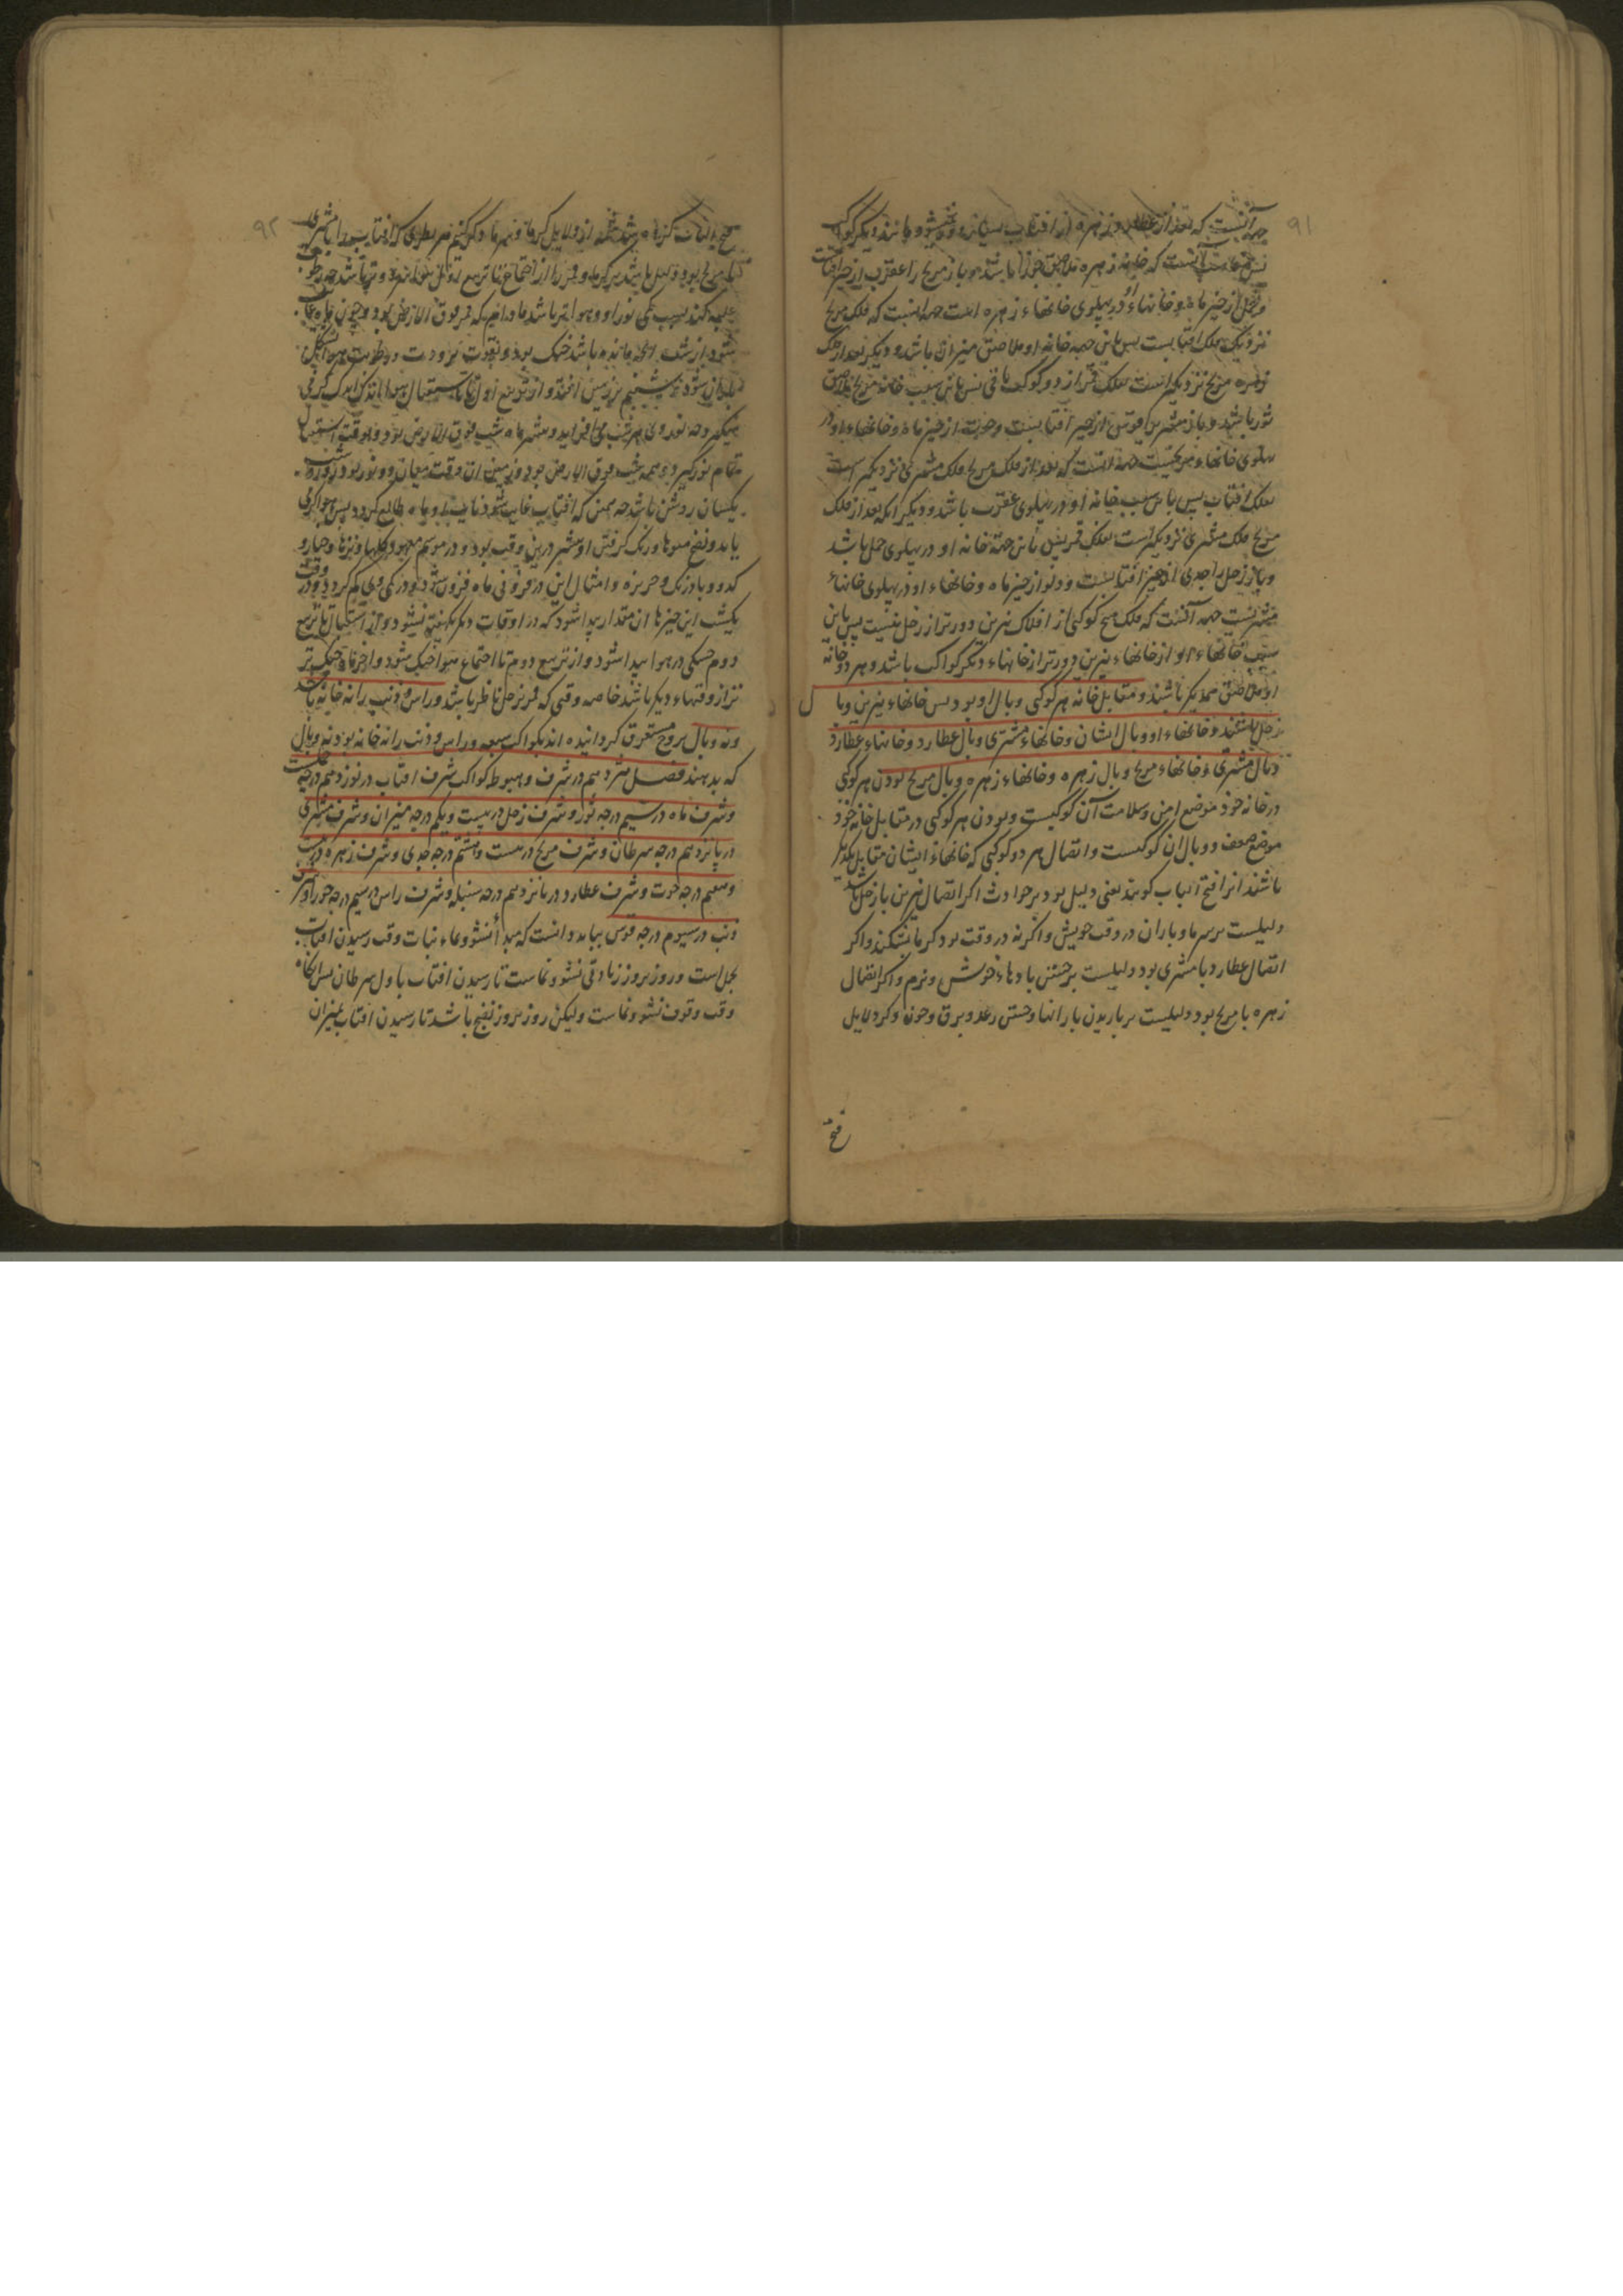 ۹۱
جهه آنست که بعد از عطارد و زهره از افتاب
که خانه زهره ملاصق جوزا باشد و باز مریخ را عقرب از حیز افتابست
و حمل از حیز ماه و خانهاء او در پهلوی خانهاء زهره است جهه انست که فلک مریخ
نزدیک فلک افتابست پس باین جهه خانه او ملاصق میزان باشد و دیگر بعد از فلک
زهره مریخ نزدیکتر است بفلک قمر از دو کوکب باقی پس باین سبب خانه مریخ ملاصق
ثور باشد و باز مشتری قوس از حیز افتابست و حوت از حیز ماه و خانهاء او در
پهلوی خانهاء مریخست جهه انست که بعد از فلک مریخ فلک مشتری نزدیکتر است
بفلک افتاب پس باین سبب خانه او در پهلوی عقرب باشد و دیگر انکه بعد از فلک
مریخ فلک مشتری نزدیکترست بفلک قمر پس باین جهة خانه او در پهلوی حمل باشد
و باز زحل را جدی از حیز افتابست و دلو از حیز ماه و خانهاء او در پهلوی خانهاء
مشتریست جهه آنست که فلک هیچ کوکبی از افلاک نیرین دورتر از زحل نیست پس باین
سبب خانهاء او از خانهاء نیرین دورتر از خانهاء دیگر کواکب باشد و هر دو خانه
او ملاصق همدیگر باشند و مقابل خانه هر کوکبی وبال او بود پس خانهاء نیرین وبال
زحل باشند و خانهاء او وبال ایشان و خانهاء مشتری وبال عطارد و خانهاء عطارد
وبال مشتری و خانهاء مریخ وبال زهره و خانهاء زهره وبال مریخ بودن هر کوکبی
در خانه خود موضع امن و سلامت آن کوکبست و بودن هر کوکبی در مقابل خانه خود
موضع ضعف و وبال ان کوکبست و اتصال هر دو کوکبی که خانهاء ایشان مقابل یکدیگر
باشند انرا فتح الباب کویند یعنی دلیل بود بر حوادث اکر اتصال نیرین با زحل باشد
دلیلست بر سرما و باران در وقت خویش و اکر نه در وقت بود کرما بشکند و اکر
اتصال عطارد با مشتری بود دلیلست بر جستن بادهاء خوش و نرم و اکر اتصال
زهره با مریخ بود دلیلست بر باریدن بارانها و جستن رعد و برق و چون ذکر دلایل
فتح
۹۲
فتح الباب کرده شد از دلایل کرما و سرما ذکر کنیم هر نظری که افتاب را با مشتری
یا مریخ بود دلیل باشد بر کرما و قمر را از اجتماع تا تربیع اول
غلبه کند بسبب کمی نور او و هوا تر باشد مادام که قمر فوق الارض بود و چون ماه غایب
شود از شب انچه مانده باشد خنک بود و بقوت برودت و رطوبت
باران شود و شبنم بر زمین افتد و از تربیع اول تا باستقبال هوا اندک اندک کرمی
میکیرد جه نور وی هر شب می افزاید و بیشتر ماه شب فوق الارض بود و بوقت استقبال
تمام نور کیرد و همه شب فوق الارض بود و زمین ان وقت میان دو نور بود روز و شب
یکسان روشن باشد جه همین که افتاب غایب شود ماه طالع کردد پس هوا کرمی
یابد و نضج میوها و رنک کرفتن او بیشتر درین وقت بود و در موسم معهود و خیار و
کدو و بادرنک و خربزه و امثال این در فزونی ماه فزون شود و در کمی وی کم کردد و در وقت
یکشب این چیزها ان مقدار پیدا شود که در اوقات دیکر بکهفته نشود و از استقبال تا تربیع
دوم خشکی در هوا پیدا شود و از تربیع دوم تا اجتماع هوا خنک شود و اخر ماه خنک تر
تر از وقتهاء دیکر باشد خاصه وقتی که قمر بزحل ناظر باشد و راس و ذنب را نه خانه باشد
و نه وبال بروج مستغرق کردانیده اند بکواکب سبعه و راس و ذنب را نه خانه بود نه وبال
که بدهند فصل شردهم در شرف و هبوط کواکب شرف افتاب در نوزدهم درجه حملست
و شرف ماه در سیم درجه ثور و شرف زحل در بیست و یکم درجه میزان و شرف مشتری
در پانزدهم درجه سرطان و شرف مریخ در بیست و هشتم درجه جدی و شرف زهره در بیست
و هفتم درجه حوت و شرف عطارد در پانزدهم درجه سنبله و شرف راس در سیم درجه جوزا و شرف
ذنب در سیوم درجه قوس بباید دانست که مبدأ نشو و نماء نبات وقت رسیدن افتاب
بحمل است و روز بروز زیادتی نشو و نماست تا رسیدن افتاب باول سرطان پس انکاه
وقت وقوف نشو و نماست ولیکن روز بروز نضج باشد تا رسیدن افتاب بمیزان